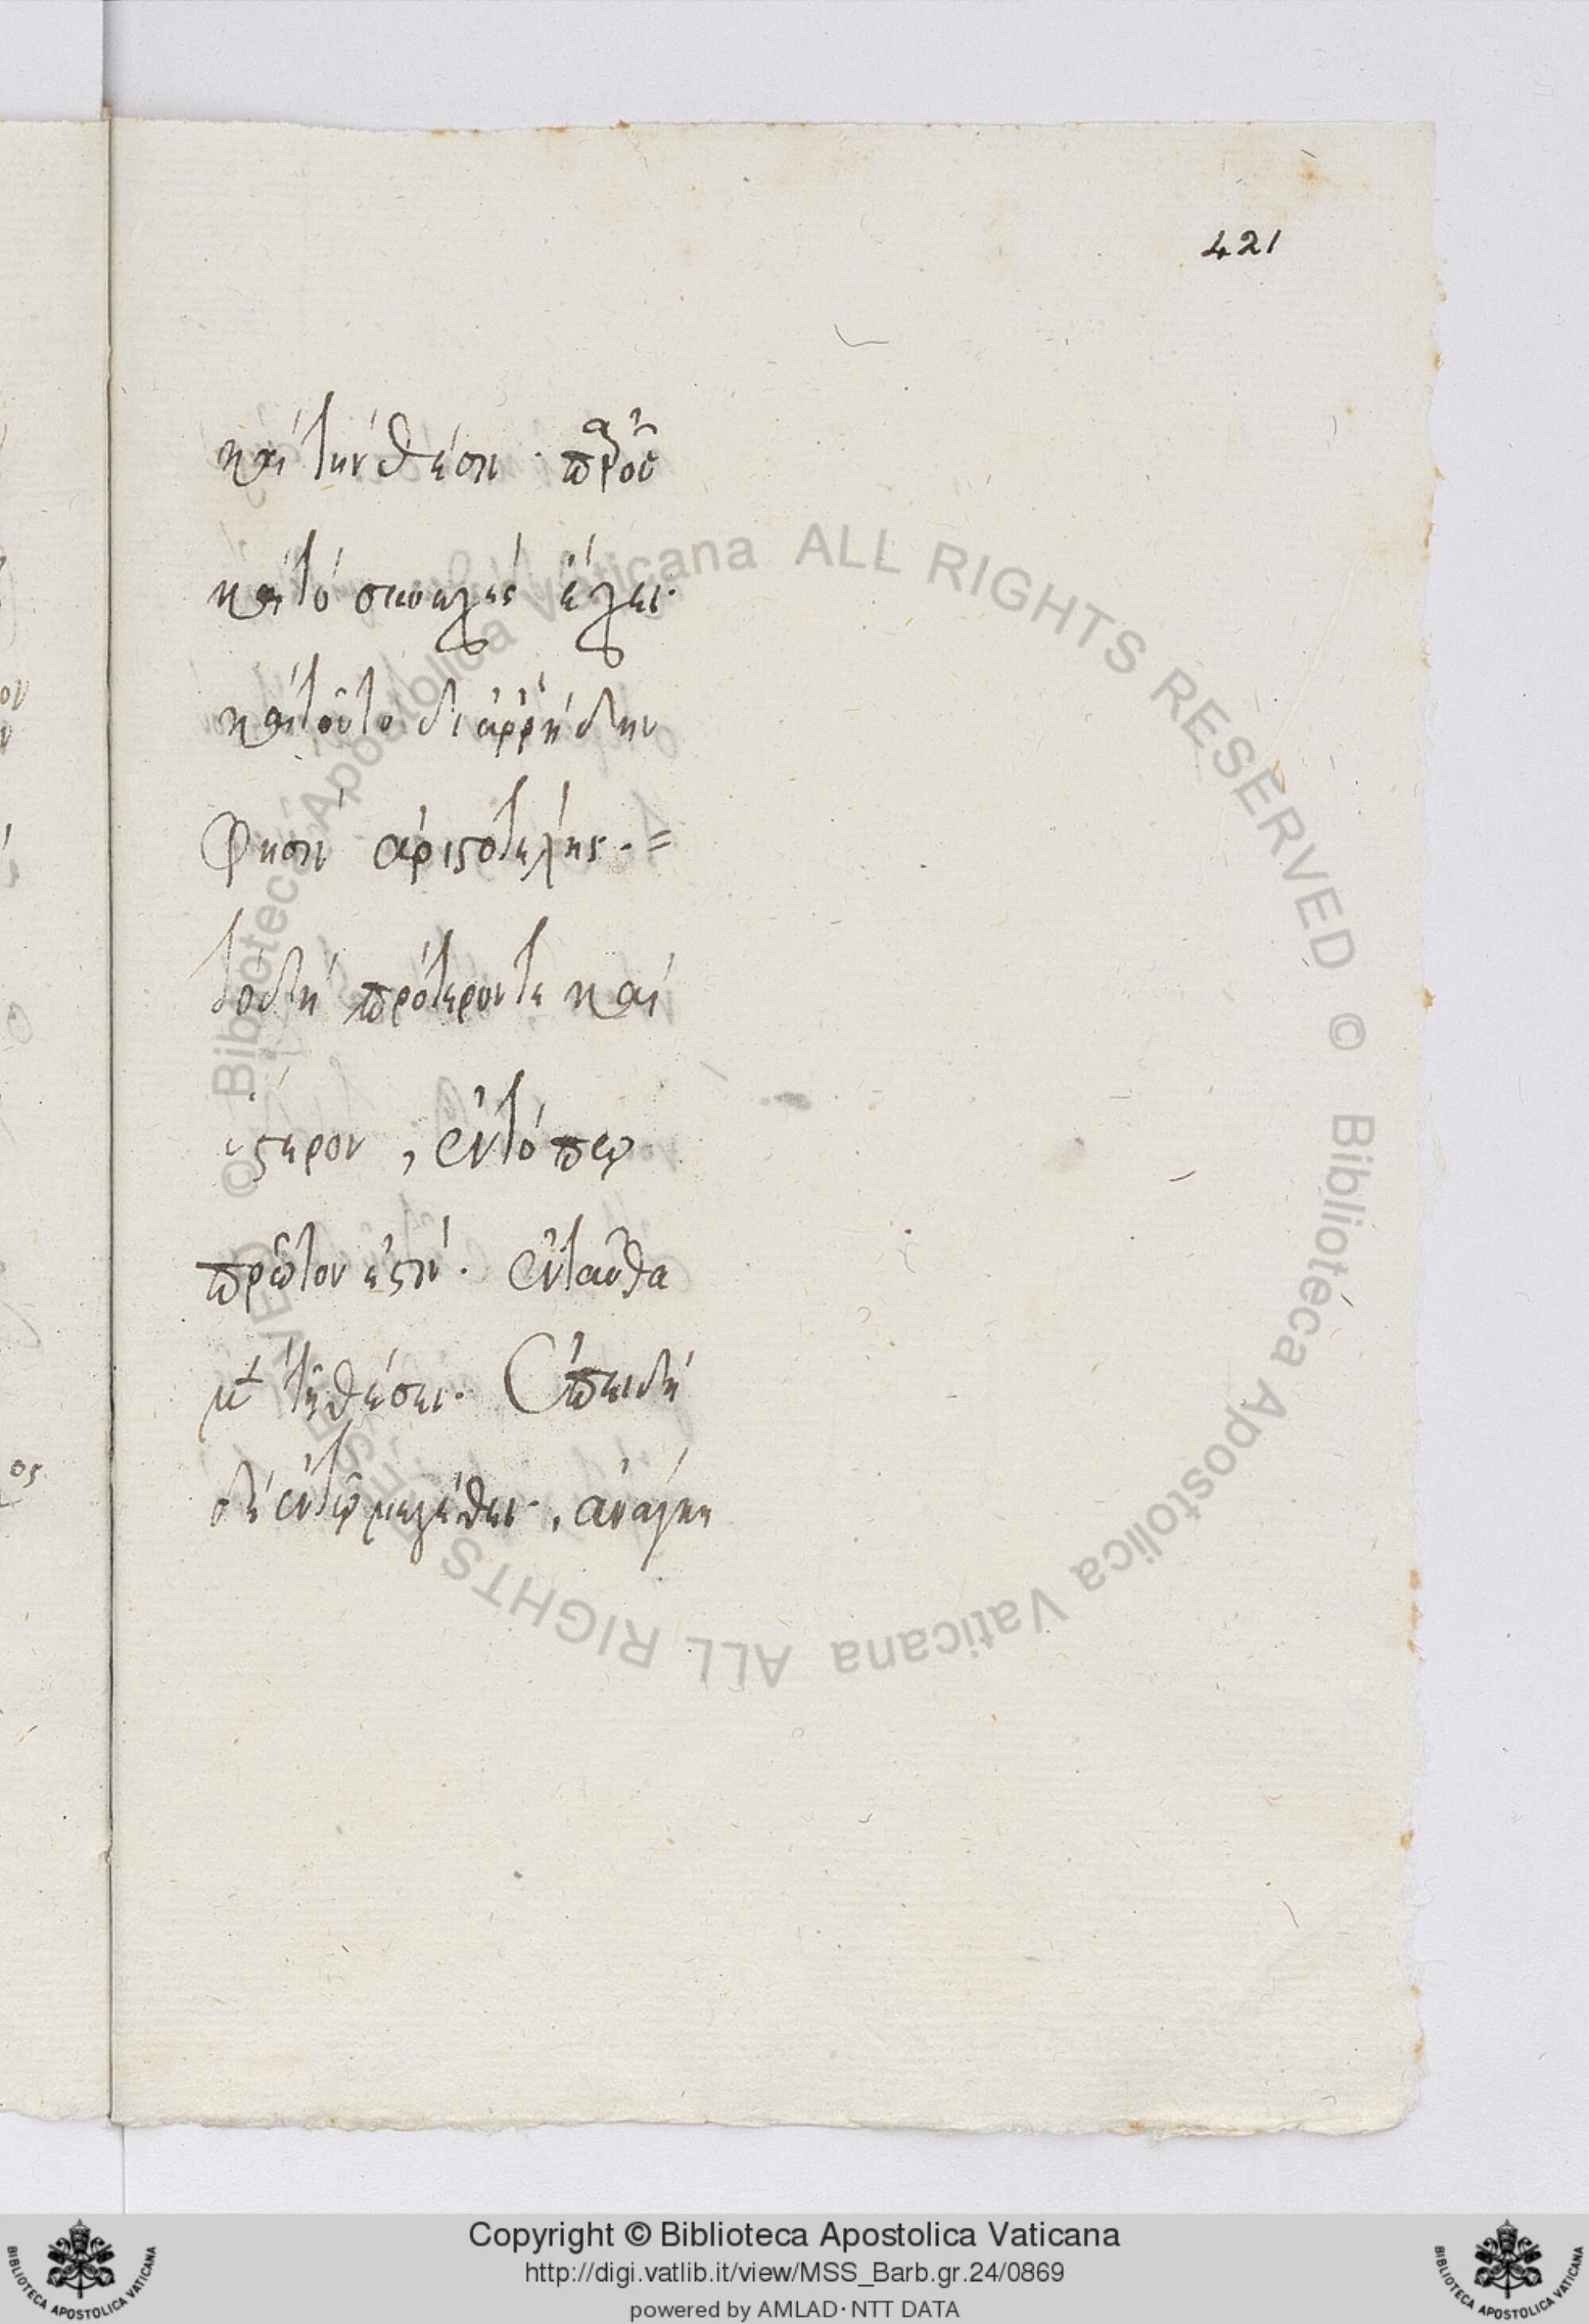 421
καὶ τὴν θέσιν· παρ' οὗ
καὶ τὸ συνεχὲς ἔχει·
καὶ τοῦτο διαῤῥήδην
φησὶν ἀριστοτέλης·=
τὸ δὴ πρότερόν τε καὶ
ὕστερον, ἐν τόπω
πρῶτον ἐστίν· ἐνταῦθα
μὲν τῇ θέσει· Ἐπειδὴ
δὲ ἐν τῷ μεγέθει·, ἀνάγκη
© Biblioteca Apostolica Vaticana ALL RIGHTS RESERVED © Biblioteca Apostolica Vaticana ALL RIGHTS RESERVED
Copyright © Biblioteca Apostolica Vaticana
http://digi.vatlib.it/view/MSS_Barb.gr.24/0869
powered by AMLAD·NTT DATA
BIBLIOTECA APOSTOLICA VATICANA
BIBLIOTECA APOSTOLICA VATICANA